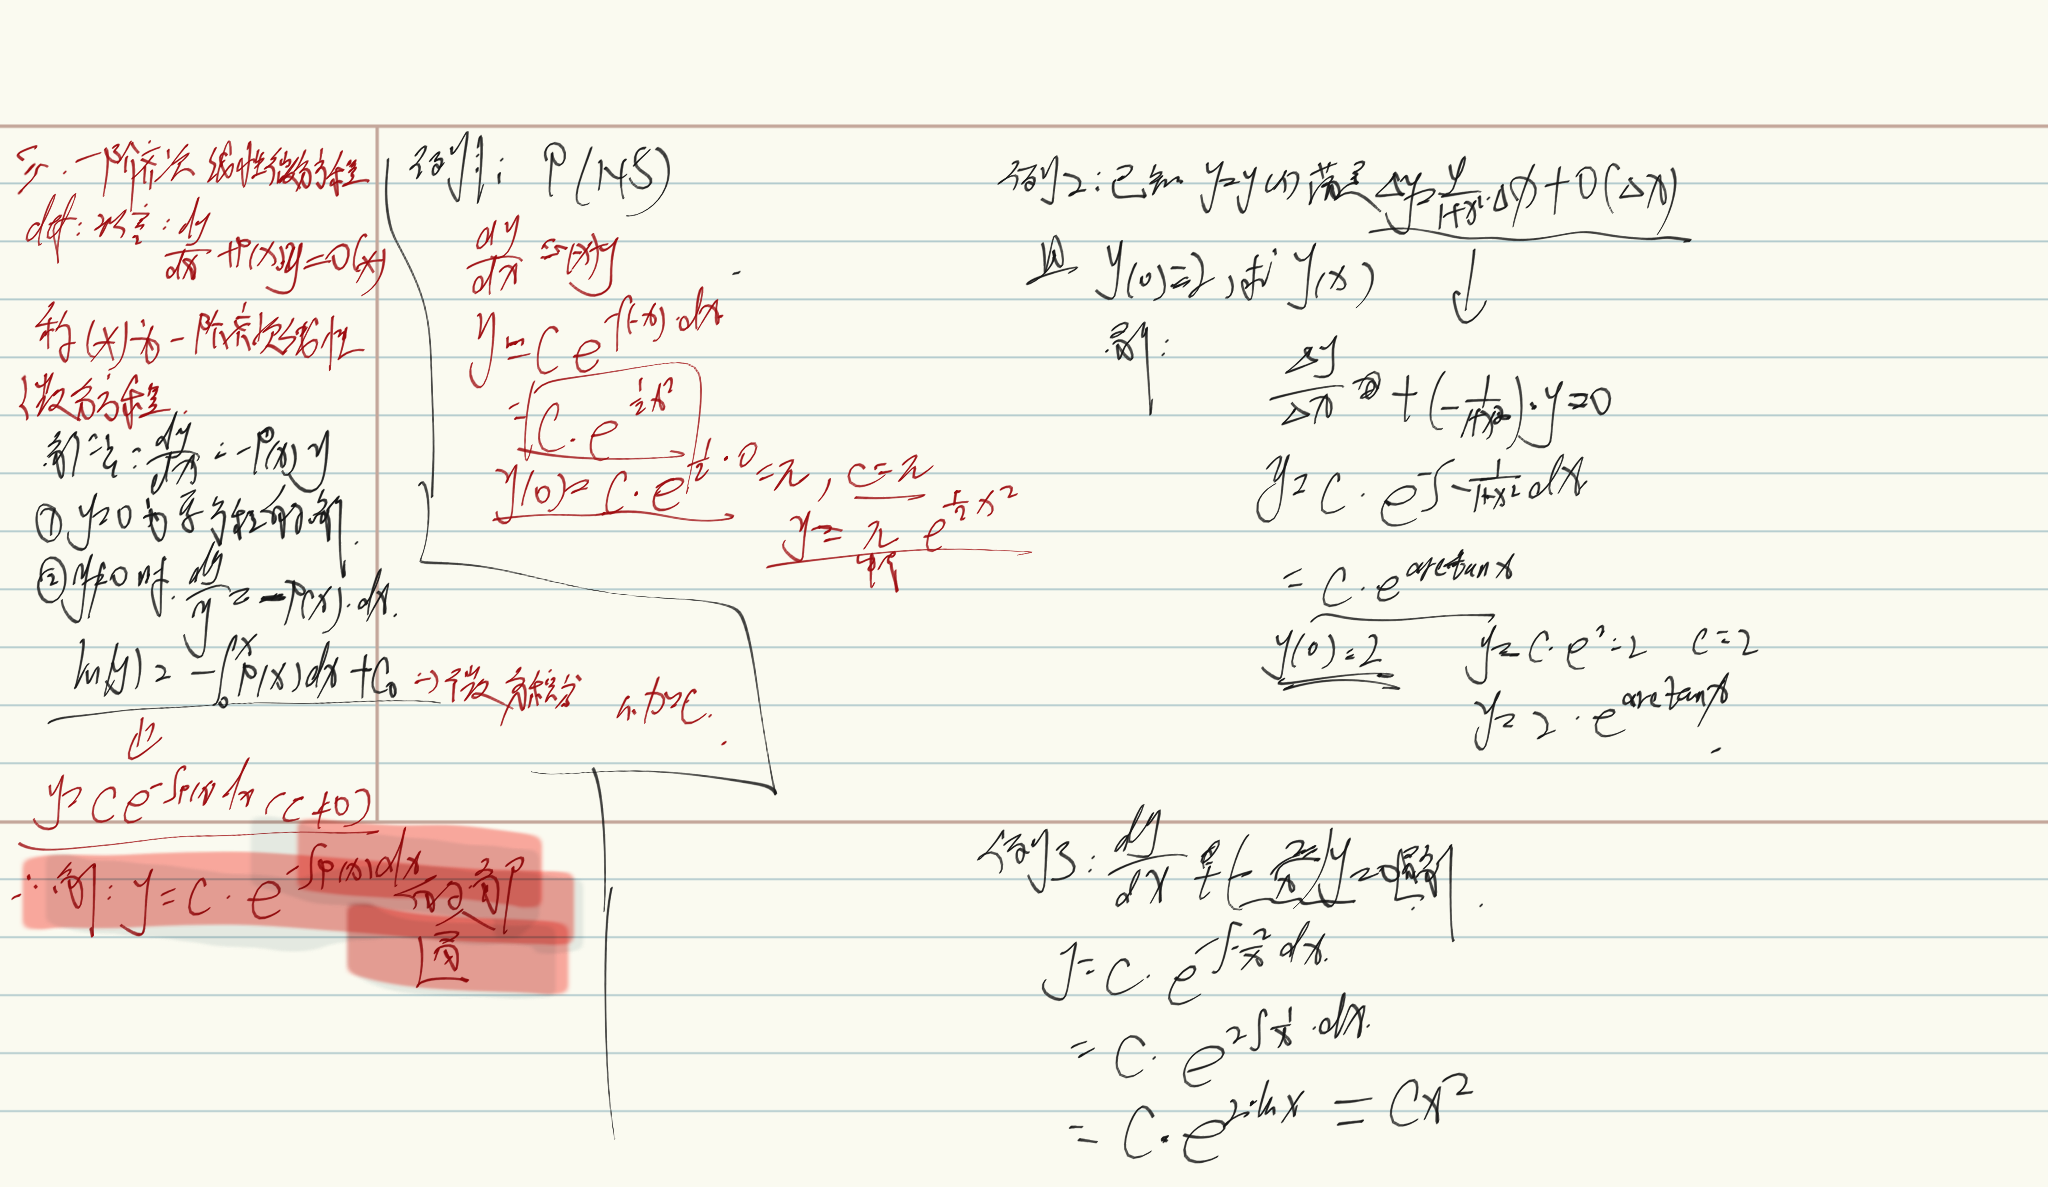 三.一阶齐次线性微分方程
def:形如:dy/dx+P(x)y=0(*)
称(*)为一阶齐次线性
微分方程.
解法:dy/dx=-P(x)y
①y=0为原方程的解.
②y≠0时.dy/y=-P(x).dx.
ln|y|=-∫₀ˣP(x)dx+C₀ => 微分方程
y=Ce^{-∫P(x)dx}(C≠0)
∴解:y=C·e^{-∫P(x)dx}的通解
例1: P(145)
dy/dx
y=Ce^{-∫(-x)·dx}
=C·e^{½x²}
y(0)=C·e^{½·0}=π, C=π
y=πe^{½x²}
例2:已知y=y(x)满足Δy=y/(1+x²)·Δx+0(Δx)
且 y(0)=2,求y(x)
解:
Δy/Δx+(-1/(1+x²))·y=0
y=C·e^{-∫-1/(1+x²)dx}
=C·e^{arctanx}
y(0)=2 y=C·e^{0}=2 C=2
y=2·e^{arctanx}.
例3:dy/dx+(-2/x)y=0通解.
y=C·e^{-∫-2/x dx}.
=C·e^{2∫1/x·dx}.
=C·e^{2·lnx}=Cx²